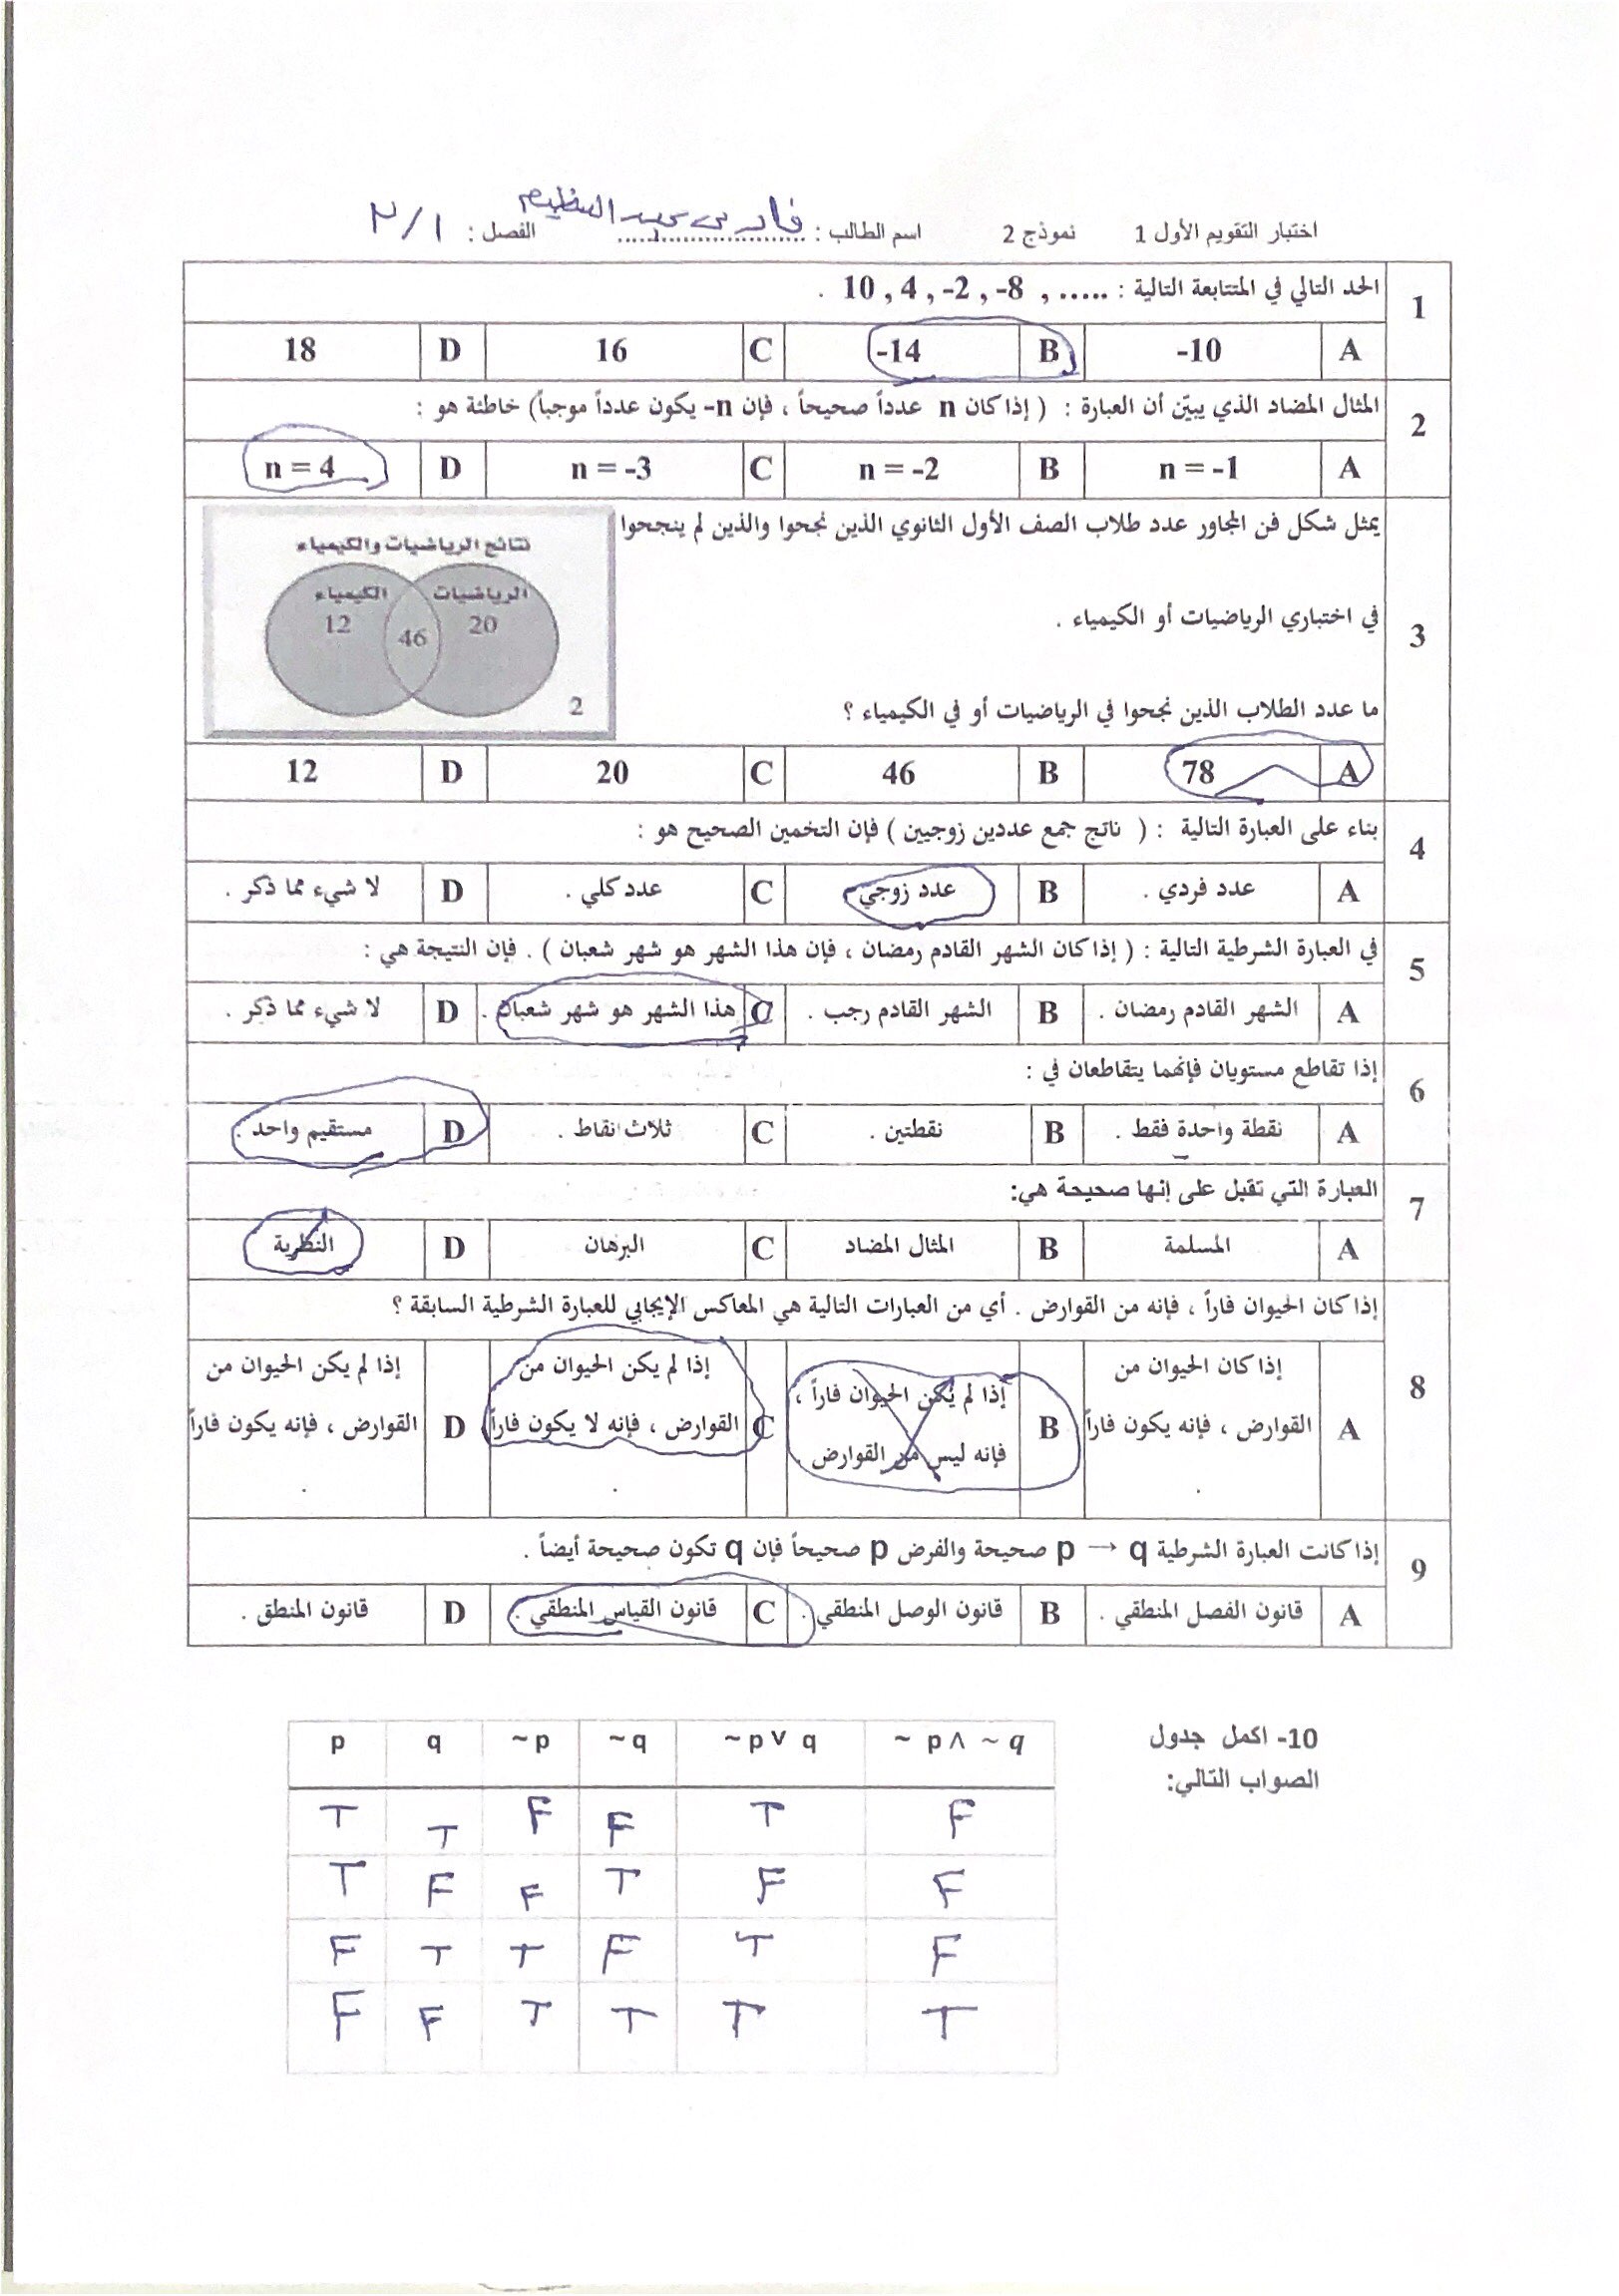 اختبار التقويم الأول 1 نموذج 2 اسم الطالب : فارس عبد العظيم الفصل : ٢/١
1 الحد التالي في المتتابعة التالية : 10 , 4 , -2 , -8 , ..... .
A -10 B -14 C 16 D 18
2 المثال المضاد الذي يبيّن أن العبارة : ( إذا كان n عدداً صحيحاً ، فإن n- يكون عدداً موجباً) خاطئة هو :
A n = -1 B n = -2 C n = -3 D n = 4
3 يمثل شكل فن المجاور عدد طلاب الصف الأول الثانوي الذين نجحوا والذين لم ينجحوا
في اختباري الرياضيات أو الكيمياء .
ما عدد الطلاب الذين نجحوا في الرياضيات أو في الكيمياء ؟
نتائج الرياضيات والكيمياء
الرياضيات الكيمياء
20 46 12
2
A 78 B 46 C 20 D 12
4 بناء على العبارة التالية : ( ناتج جمع عددين زوجيين ) فإن التخمين الصحيح هو :
A عدد فردي . B عدد زوجي C عدد كلي . D لا شيء مما ذكر .
5 في العبارة الشرطية التالية : ( إذا كان الشهر القادم رمضان ، فإن هذا الشهر هو شهر شعبان ) . فإن النتيجة هي :
A الشهر القادم رمضان . B الشهر القادم رجب . C هذا الشهر هو شهر شعبان . D لا شيء مما ذكر .
6 إذا تقاطع مستويان فإنهما يتقاطعان في :
A نقطة واحدة فقط . B نقطتين . C ثلاث نقاط . D مستقيم واحد .
7 العبارة التي تقبل على إنها صحيحة هي:
A المسلمة B المثال المضاد C البرهان D النظرية
8 إذا كان الحيوان فاراً ، فإنه من القوارض . أي من العبارات التالية هي المعاكس الإيجابي للعبارة الشرطية السابقة ؟
A إذا كان الحيوان من القوارض ، فإنه يكون فاراً .
B إذا لم يكن الحيوان فاراً ، فإنه ليس من القوارض .
C إذا لم يكن الحيوان من القوارض ، فإنه لا يكون فاراً .
D إذا لم يكن الحيوان من القوارض ، فإنه يكون فاراً .
9 إذا كانت العبارة الشرطية p → q صحيحة والفرض p صحيحاً فإن q تكون صحيحة أيضاً .
A قانون الفصل المنطقي . B قانون الوصل المنطقي . C قانون القياس المنطقي . D قانون المنطق .
10- اكمل جدول
الصواب التالي:
p q ~p ~q ~p ∨ q ~ p ∧ ~ q
T T F F T F
T F F T F F
F T T F T F
F F T T T T